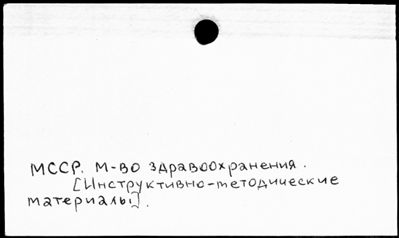 МССР. М-во здравоохранения.
[Инструктивно-методические
материалы].